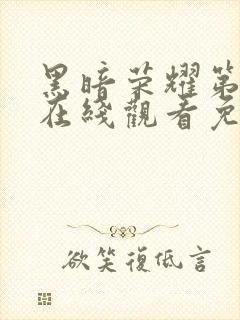 黑暗荣耀第
在线觀看免
欲笑復低言